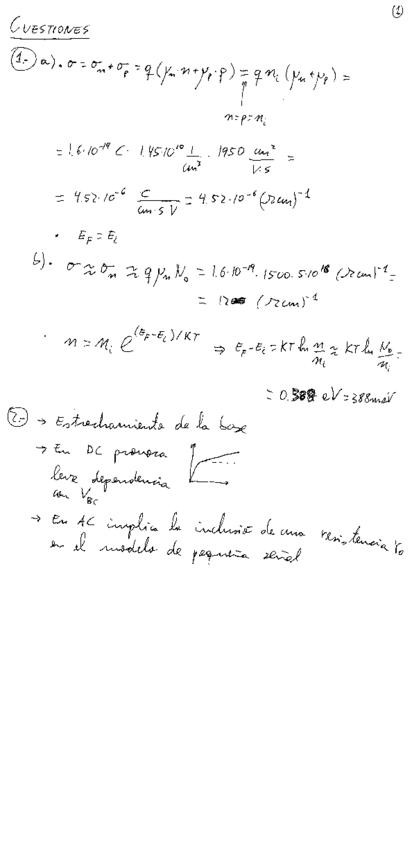 (1)
CUESTIONES
1.- a). σ = σn + σp = q(μn·n + μp·p) = q ni (μn + μp) =
n=p=ni
= 1.6·10^-19 C · 1.45·10^10 1/cm³ · 1950 cm²/V·s =
= 4.52·10^-6 C/cm·s·V = 4.52·10^-6 (Ωcm)^-1
· EF = Ei
b). σ ≈ σn ≈ q μn ND = 1.6·10^-19 · 1500 · 5·10^18 (Ωcm)^-1 =
= (Ωcm)^-1
· n = ni e^(EF-Ei)/KT ⇒ EF-Ei = KT ln n/ni ≈ KT ln ND/ni =
= 0.388 eV = 388 meV
2.- → Estrechamiento de la base
→ En DC provoca
leve dependencia
con VBC
→ En AC implica la inclusió de una resistencia ro
en el modelo de pequeña señal